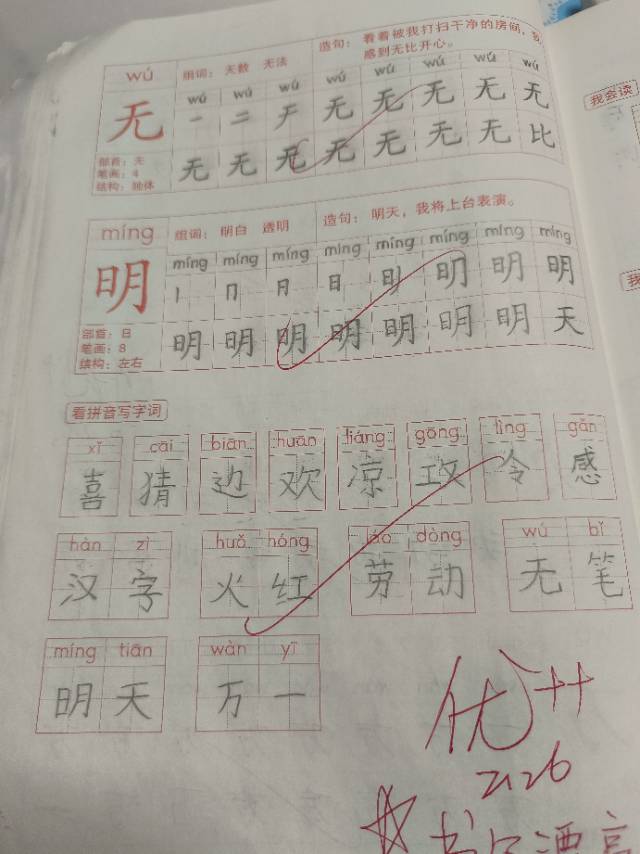 wú 组词：无数 无法 造句：看着被我打扫干净的房间，我
感到无比开心。
wú wú wú wú wú wú wú wú
无 一 二 𠂇 无 无 无 无 无
部首：无
笔画：4
结构：独体
无 无 无 无 无 无 无 比
míng 组词：明白 透明 造句：明天，我将上台表演。
míng míng míng míng míng míng míng míng
明 丨 冂 日 日 明 明 明
部首：日
笔画：8
结构：左右
明 明 明 明 明 明 明 天
看拼音写字词
xǐ cāi biān huān liáng gōng lìng gǎn
喜 猜 边 欢 凉 攻 令 感
hàn zì huǒ hóng láo dòng wú bǐ
汉 字 火 红 劳 动 无 笔
míng tiān wàn yī
明 天 万 一
优++
2.26
书写漂亮
我会读
我